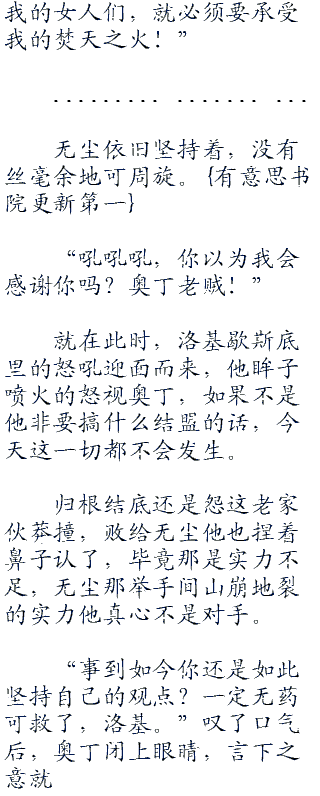 我的女人们，就必须要承受
我的焚天之火！”
......... ....... ...
无尘依旧坚持着，没有
丝毫余地可周旋。{有意思书
院更新第一}
“吼吼吼，你以为我会
感谢你吗？奥丁老贼！”
就在此时，洛基歇斯底
里的怒吼迎面而来，他眸子
喷火的怒视奥丁，如果不是
他非要搞什么结盟的话，今
天这一切都不会发生。
归根结底还是怨这老家
伙莽撞，败给无尘他也捏着
鼻子认了，毕竟那是实力不
足，无尘那举手间山崩地裂
的实力他真心不是对手。
“事到如今你还是如此
坚持自己的观点？一定无药
可救了，洛基。”叹了口气
后，奥丁闭上眼睛，言下之
意就